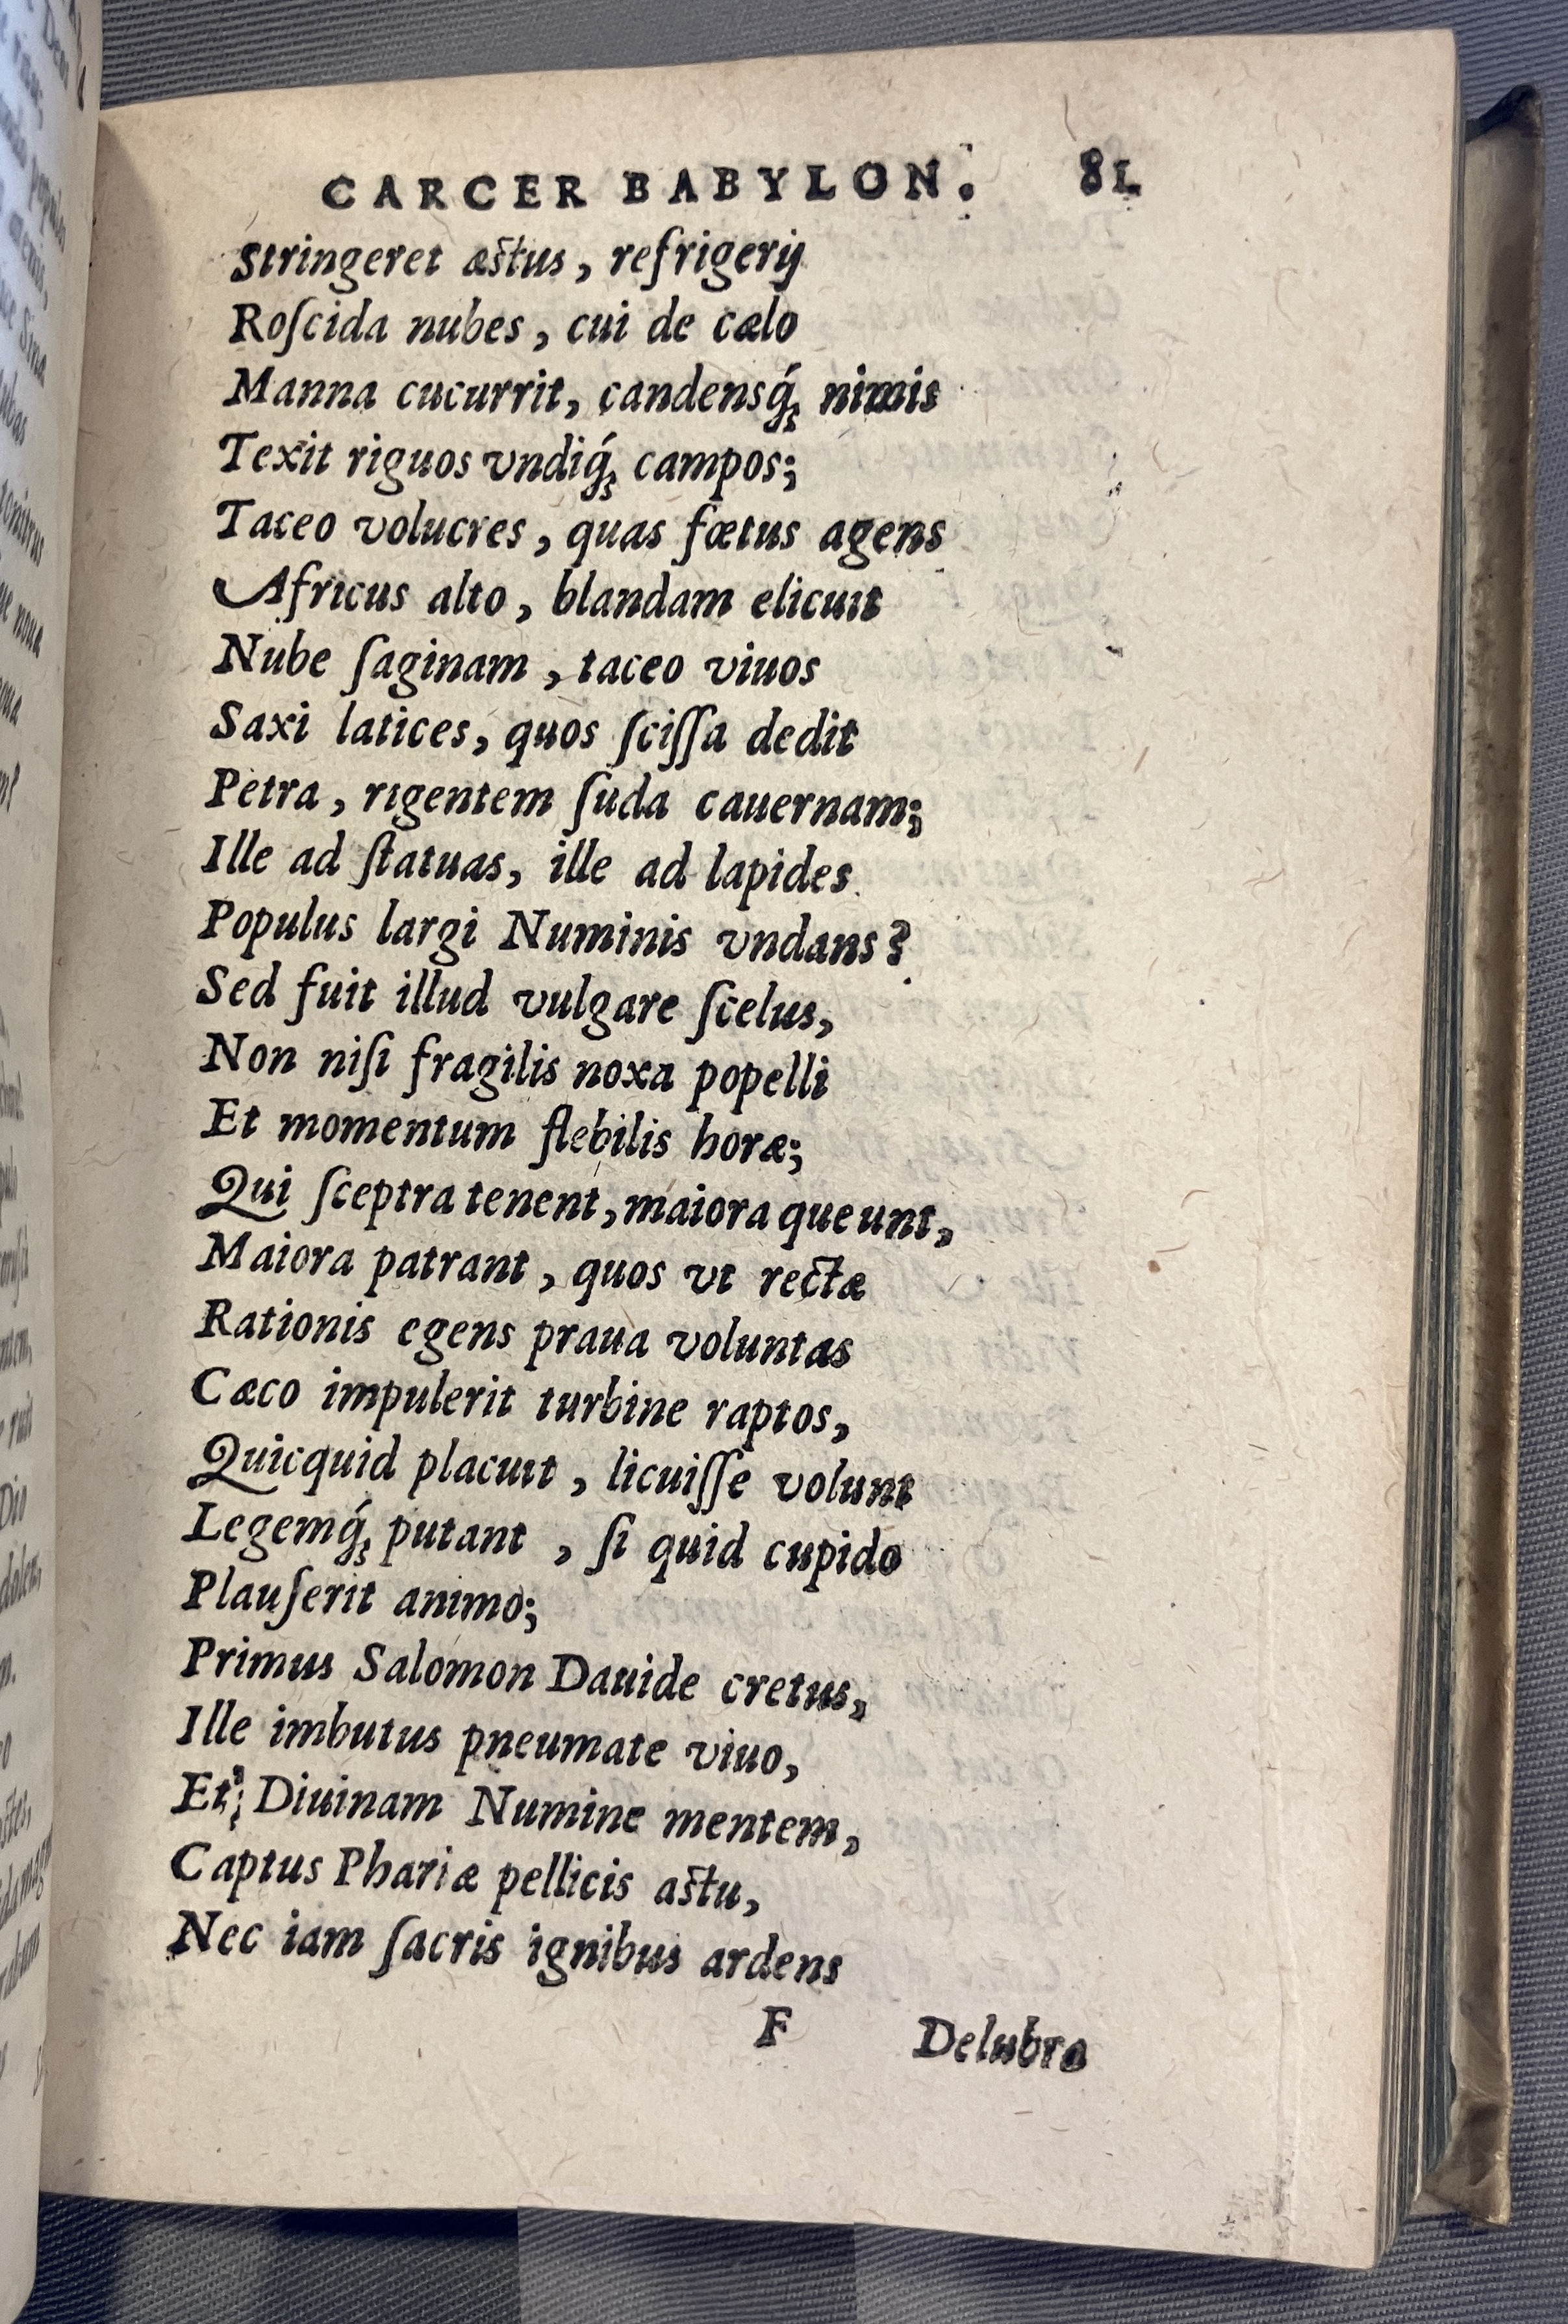 CARCER BABYLON. 81
Stringeret æstus, refrigerij
Roſcida nubes, cui de cælo
Manna cucurrit, candensq́; nimis
Texit riguos vndiq́; campos;
Taceo volucres, quas fœtus agens
Africus alto, blandam elicuit
Nube ſaginam, taceo viuos
Saxi latices, quos ſciſſa dedit
Petra, rigentem ſuda cauernam;
Ille ad ſtatuas, ille ad lapides
Populus largi Numinis vndans?
Sed fuit illud vulgare ſcelus,
Non niſi fragilis noxa popelli
Et momentum flebilis horæ;
Qui ſceptra tenent, maiora queunt,
Maiora patrant, quos vt rectæ
Rationis egens praua voluntas
Cæco impulerit turbine raptos,
Quicquid placuit, licuiſſe volunt
Legemq́; putant, ſi quid cupido
Plauſerit animo;
Primus Salomon Dauide cretus,
Ille imbutus pneumate viuo,
Et Diuinam Numine mentem,
Captus Phariæ pellicis astu,
Nec iam ſacris ignibus ardens
F Delubra